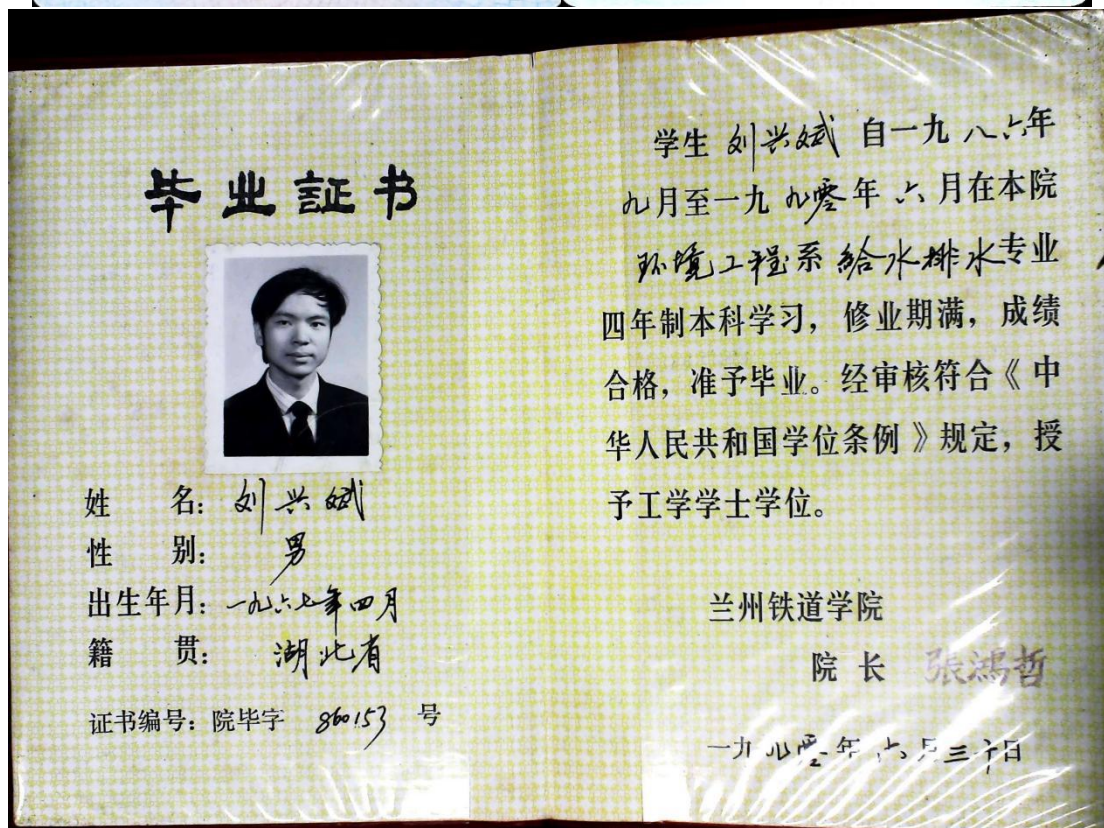 毕业証书
姓 名：刘兴斌
性 别：男
出生年月：一九六七年四月
籍 贯：湖北省
证书编号：院毕字 860153 号
学生 刘兴斌 自一九八六年
九月至一九九零年六月在本院
环境工程系给水排水专业
四年制本科学习，修业期满，成绩
合格，准予毕业。经审核符合《中
华人民共和国学位条例》规定，授
予工学学士学位。
兰州铁道学院
院 长 張鴻哲
一九九零年六月三十日